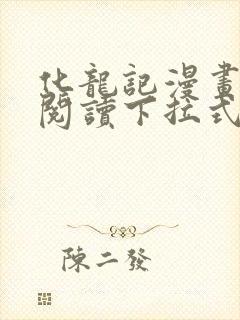 化龍記漫畫
閱讀下拉式
陳二發